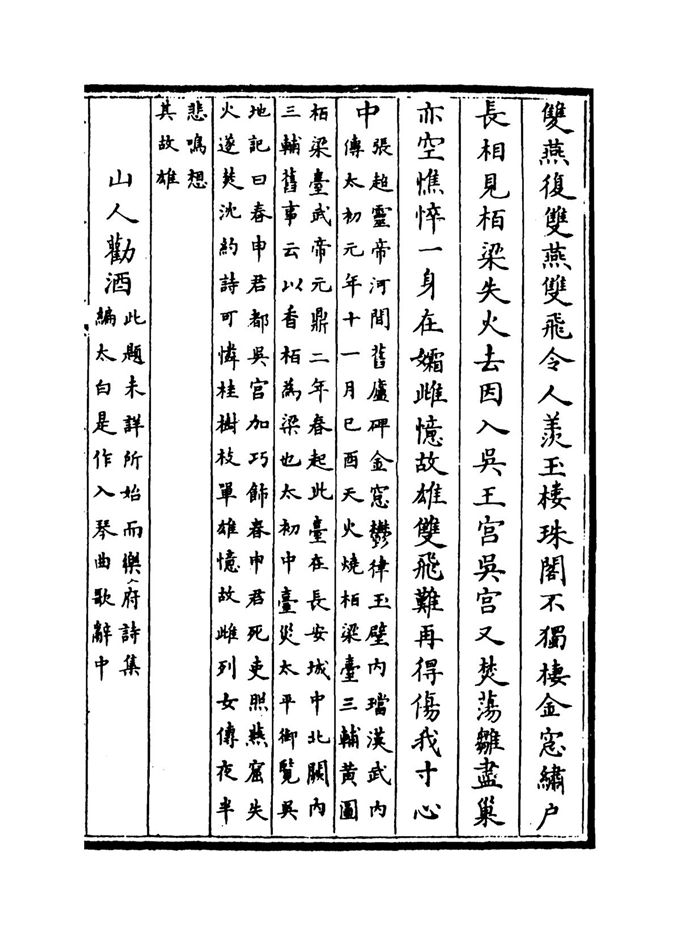 雙燕復雙燕雙飛令人羨玉樓珠閣不獨棲金窓繡户
長相見栢梁失火去因入吳王宫吳宫又焚蕩雛盡巢
亦空憔悴一身在孀雌憶故雄雙飛難再得傷我寸心
中
張超靈帝河間舊廬碑金窓鬱律玉壁内璫漢武内
傳太初元年十一月巳酉天火燒栢梁臺三輔黄圖
栢梁臺武帝元鼎二年春起此臺在長安城中北闕内
三輔舊事云以香栢為梁也太初中臺災太平御覧吳
地記曰春申君都吳宫加巧飾春申君死吏照燕窟失
火遂焚沈約詩可憐桂樹枝單雄憶故雌列女傳夜半
悲鳴想
其故雄
山人勸酒
此題未詳所始而樂府詩集
編太白是作入琴曲歌辭中